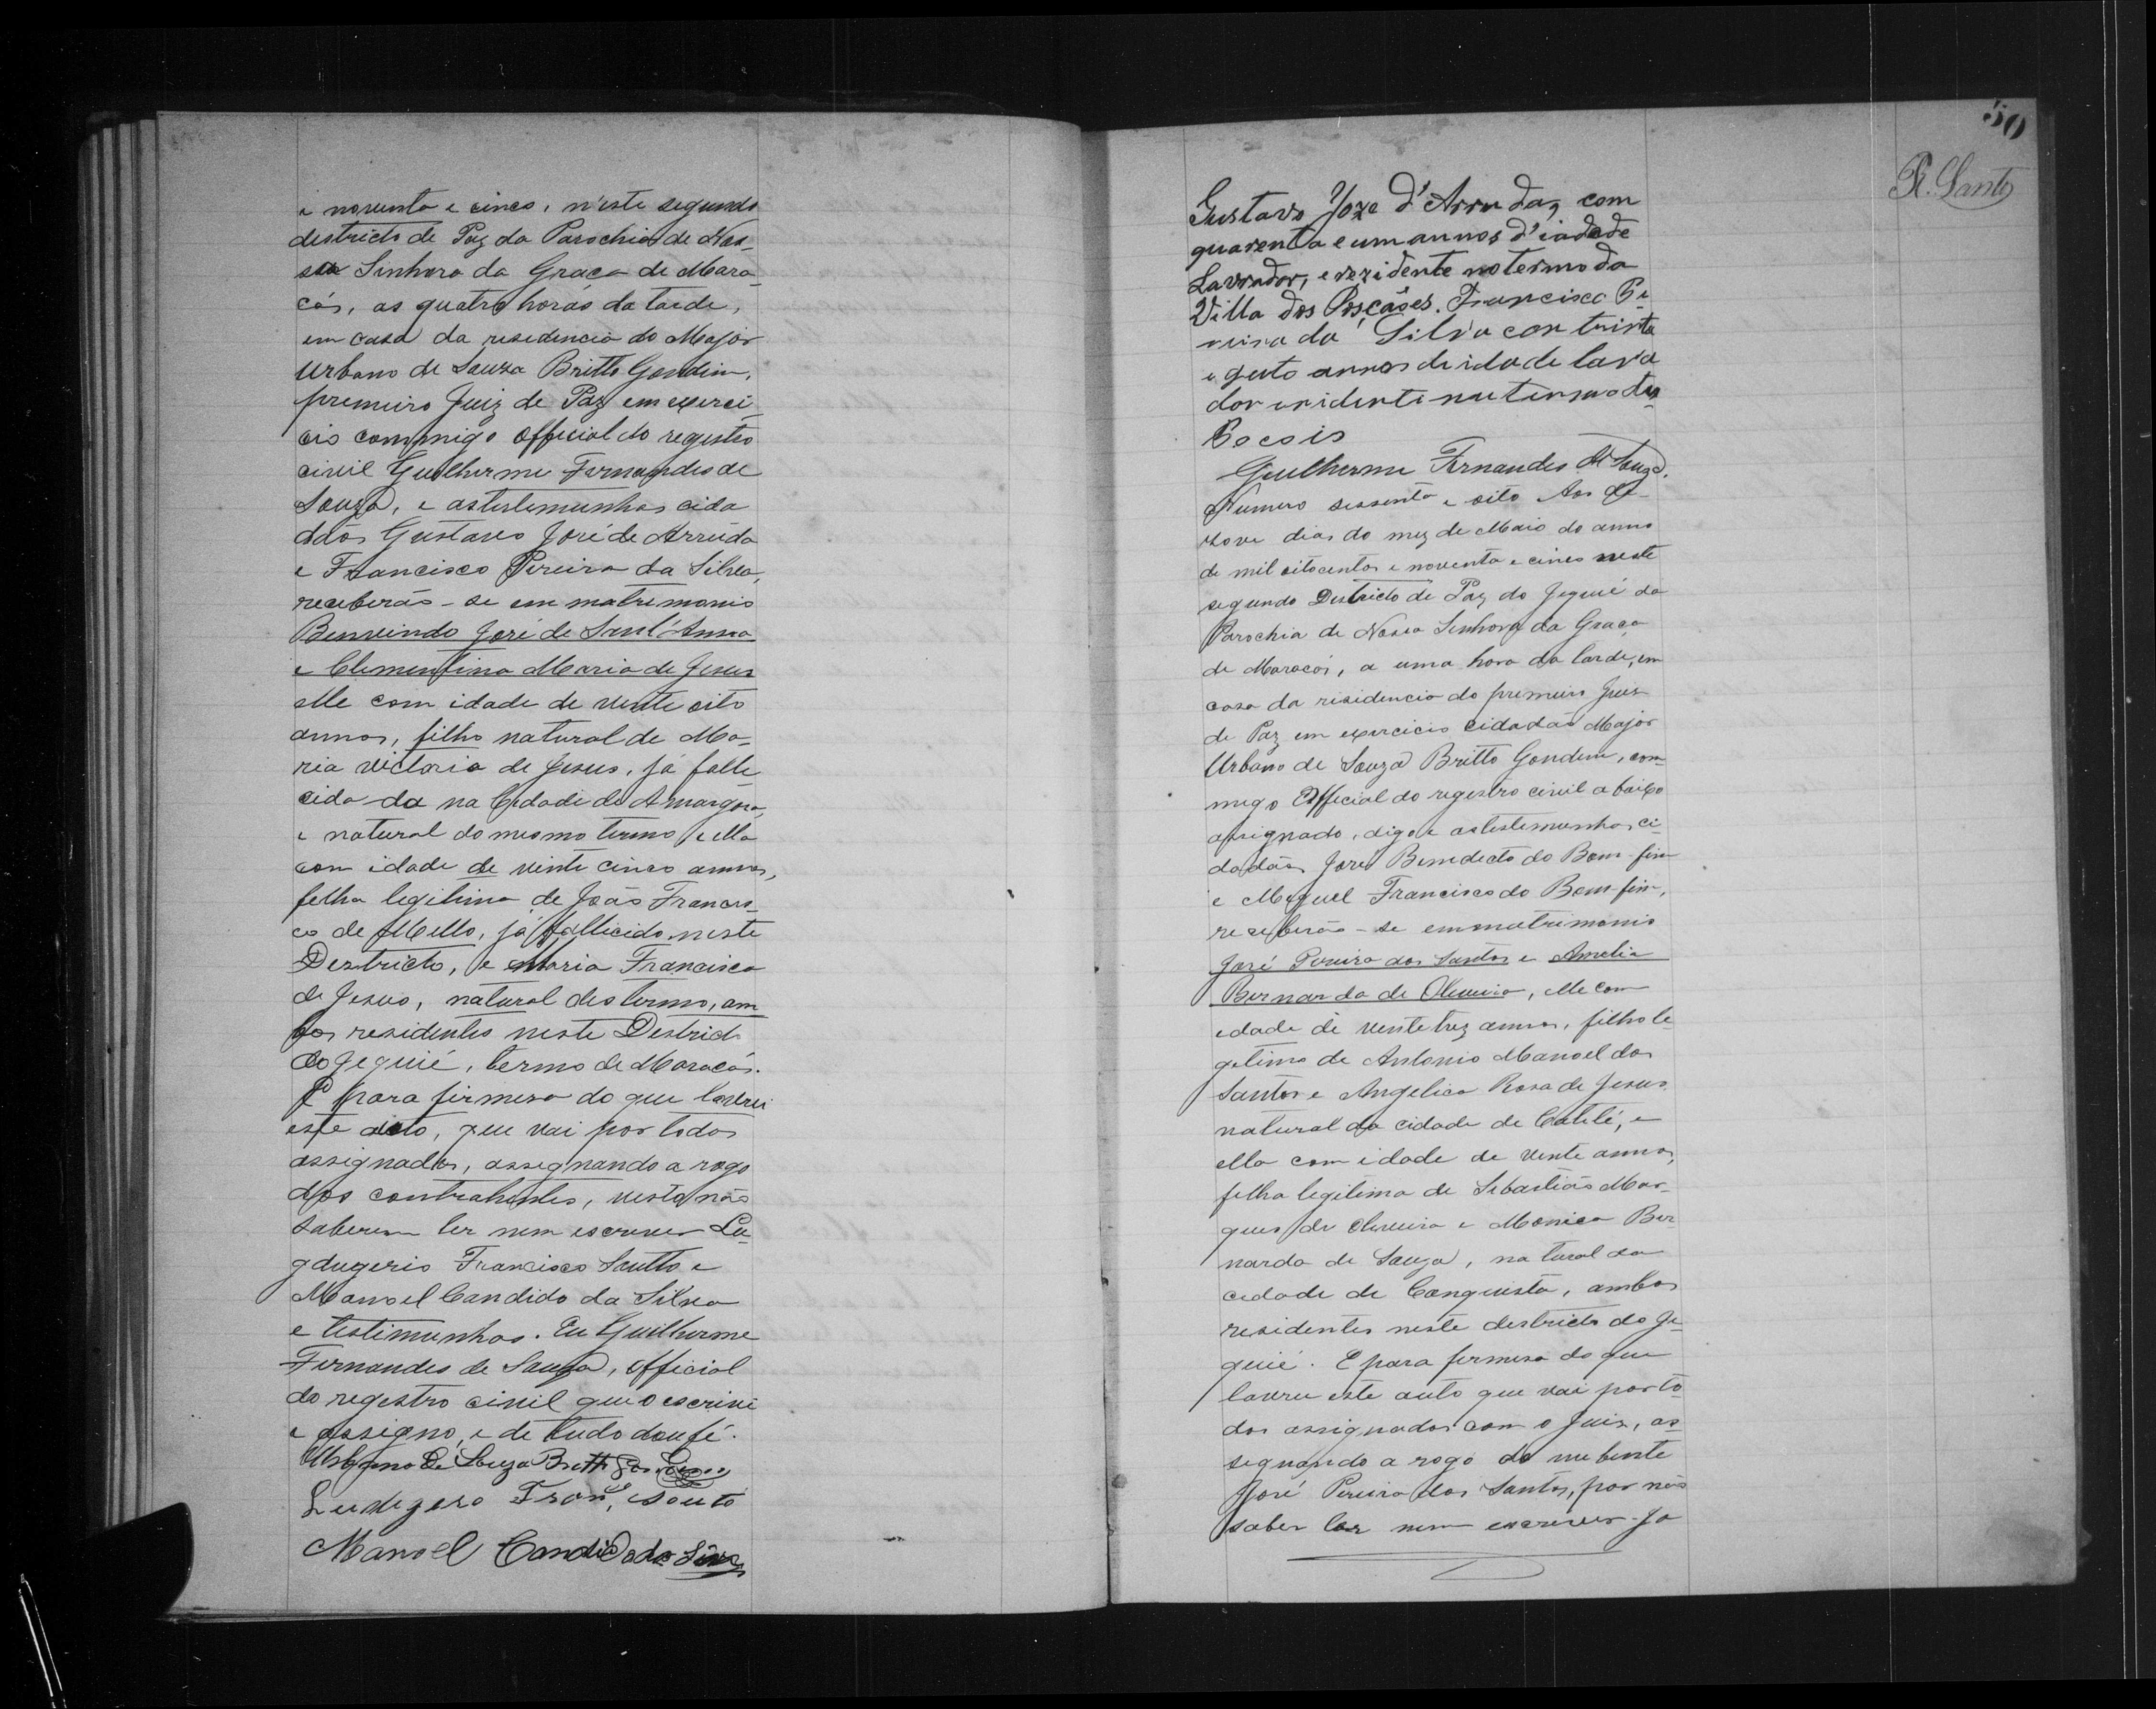 e noventa e cinco, n'este segundo
destricto de Paz da Parochia de Nos-
sa Sinhora da Graça de Mara-
cás, as quatro horas da tarde,
em casa da residencia do Major
Urbano de Souza Britto Gondim,
premeiro Juiz de Paz em exerci-
cio commigo official do registro
civil Guilherme Fernandes de
Souza, e as testemunhas cida
dãos Gustavo José de Arruda
e Francisco Pereira da Silva,
receberão-se em matrimonio
Bemvindo José de Sant'Anna
e Clementina Maria de Jesus
elle com idade de vente oito
annos, filho natural de Ma-
ria Victoria de Jesus, já falle
cida da na Cidade de Amargosa,
e natural do mesmo termo e ella
com idade de vinte cinco annos,
felha legitima de João Francis-
co de Mello, já fallicido neste
Destricto, e Maria Francisca
de Jesus, natural des termo, am
bos residentes neste Destricto
do Jequié, termo de Maracás.
E para firmesa do que lavrei
este auto, que vai por todos
assignados, assegnando a rogo
dos contrahentes, visto não
saberem ler nem escrever Lu-
gdugerio Francisco Soutto e
Manoel Candido da Silva
e testimunhas. Eu Guilherme
Fernandes de Souza, official
do registro civil que o escrivi
e assigno, e de tudo dou fé.
Urbano de Souza Britto Gondim
Ludgero Franco, Souto
Manoel Candido da Silva
50
R. Santos
Gustavo Joze d'Arruda, com
quarenta e um annos d'iadade
Lavrador, e rezidente no termo da
Villa dos Poscãoes. Francisco Pe
reira da Silva con trinta
e quto annos de idade lavra
dor residente nu termo dos
Pocois
Guilherme Fernandes de Souza.
Numero sessenta e oito Aos de-
zove dias do mez de Maio do anno
de mil oitocentos e noventa e cinco neste
segundo Districto de Paz do Jequié da
Parochia de Nossa Senhora da Graça
de Maracás, a uma hora da tarde, em
casa da risidencia do premeiro Juis
de Paz em exercicio cidadão Major
Urbano de Souza Britto Gondim, com
migo Official do registro civil abaixo
assignado, digo e as testemunhas ci-
dadãos José Benedicto do Bom-fim
e Miguel Francisco do Bom-fim,
receberão-se em matrimonio
José Pereira dos Santos e Amelia
Bernarda de Oliveira, elle com
edade de vente trez annos, filho le
getimo de Antonio Manoel dos
Santos e Angelica Rosa de Jesus
natural da cidade de Cateté, e
ella com idade de vente annos,
felha legitima de Sebastião Mar-
ques de Oliveira e Monica Ber-
narda de Souza, natural da
cedade de Conquista, ambos
residentes neste destricto do Je-
quié. E para fermesa do que
lavrei este auto que vai por to-
dos assignados com o Juiz, as-
segnando a rogo do nubente
José Pereira dos Santos, por não
saber ler nem escrever Jo